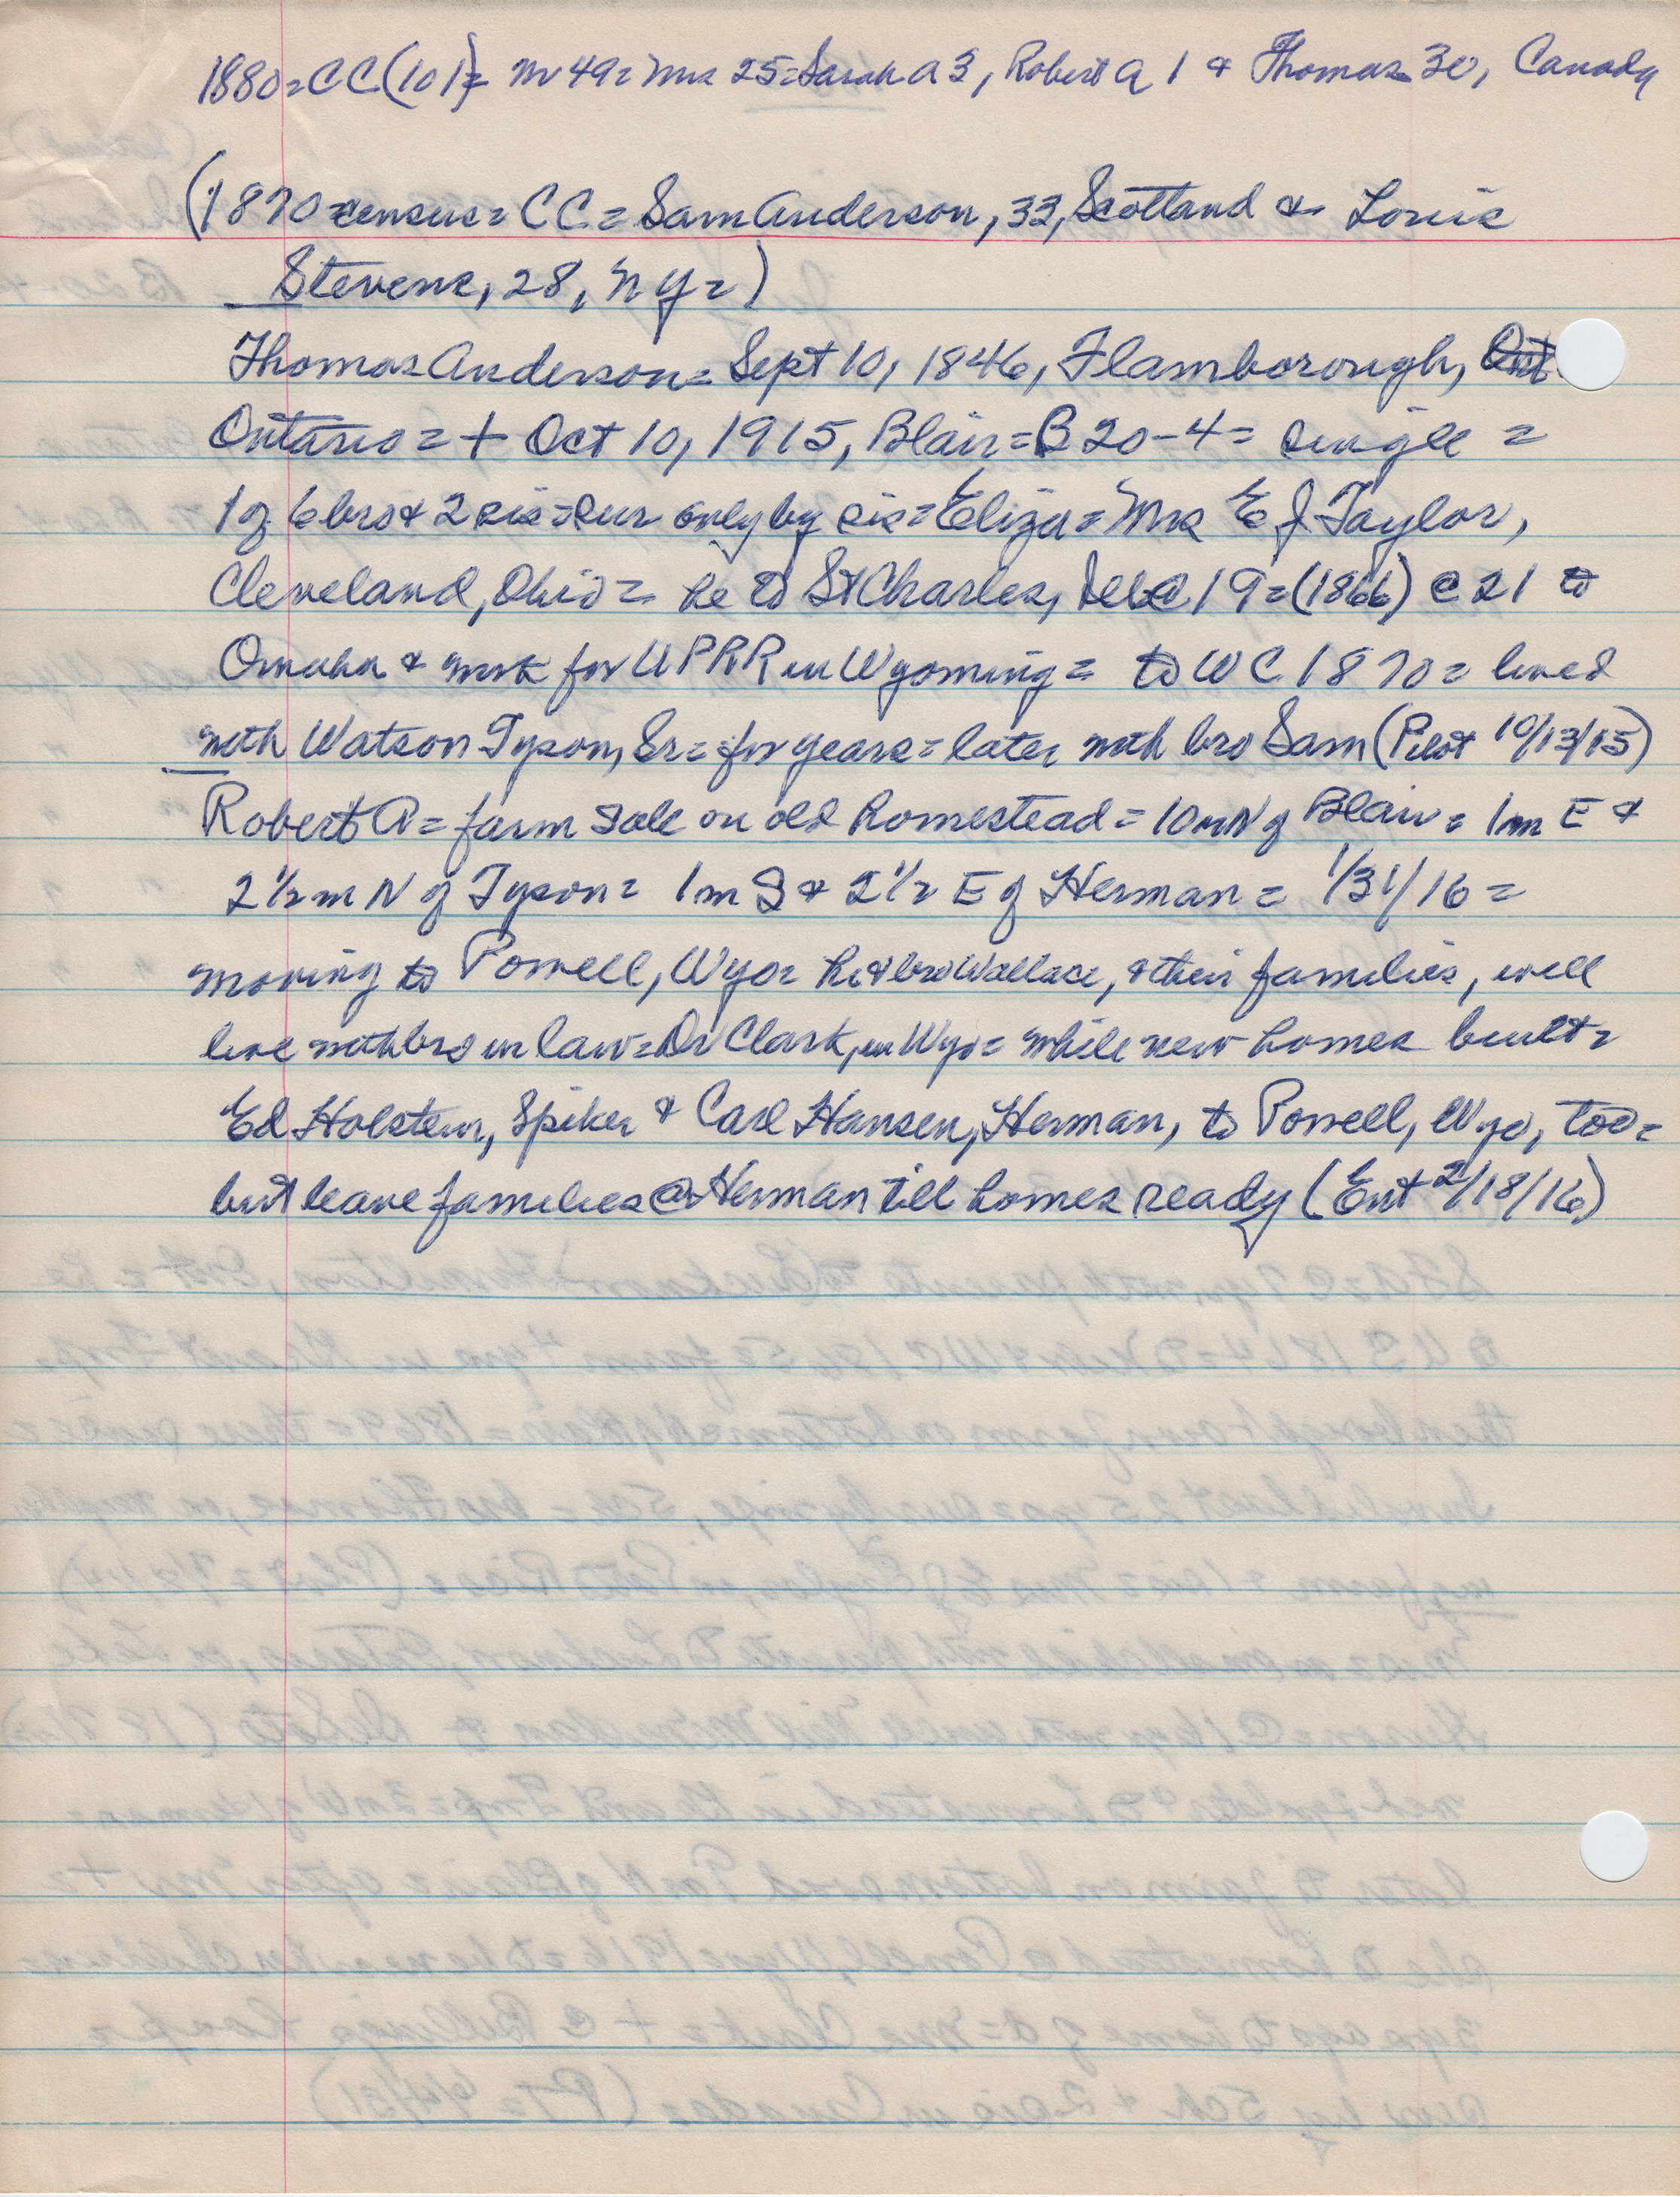 1880=CC(101)= Mr 49= Mrs 25= Sarah A 3, Robert A 1 & Thomas 30, Canada
(1870 census= CC= Sam Anderson, 33, Scotland & Louis
Stevens, 28, NY=)
Thomas Anderson= Sept 10, 1846, Flamborough, Ont
Ontario= + Oct 10, 1915, Blair= B 20-4= single =
1 of 6 bros & 2 sis= sur only by sis= Eliza= Mrs E J Taylor,
Cleveland, Ohio= he to St Charles, @ 19=(1866) @ 21 to
Omaha & work for UPRR in Wyoming= to WC 1870= lived
with Watson Tyson, Sr= for years= later with bro Sam (Pilot 10/13/15)
Robert A= farm sale on old homestead= 10 m N of Blair= 1m E &
2 1/2 m N of Tyson= 1 m S & 2 1/2 E of Herman= 1/31/16=
moving to Powell, Wyo= he & bro Wallace, & their families, will
live with bro in law= Dr Clark, in Wyo= while new homes built=
Ed Holstein, Spiker & Carl Hansen, Herman, to Powell, Wyo, too=
but leave families @ Herman till homes ready (Ent 2/18/16)